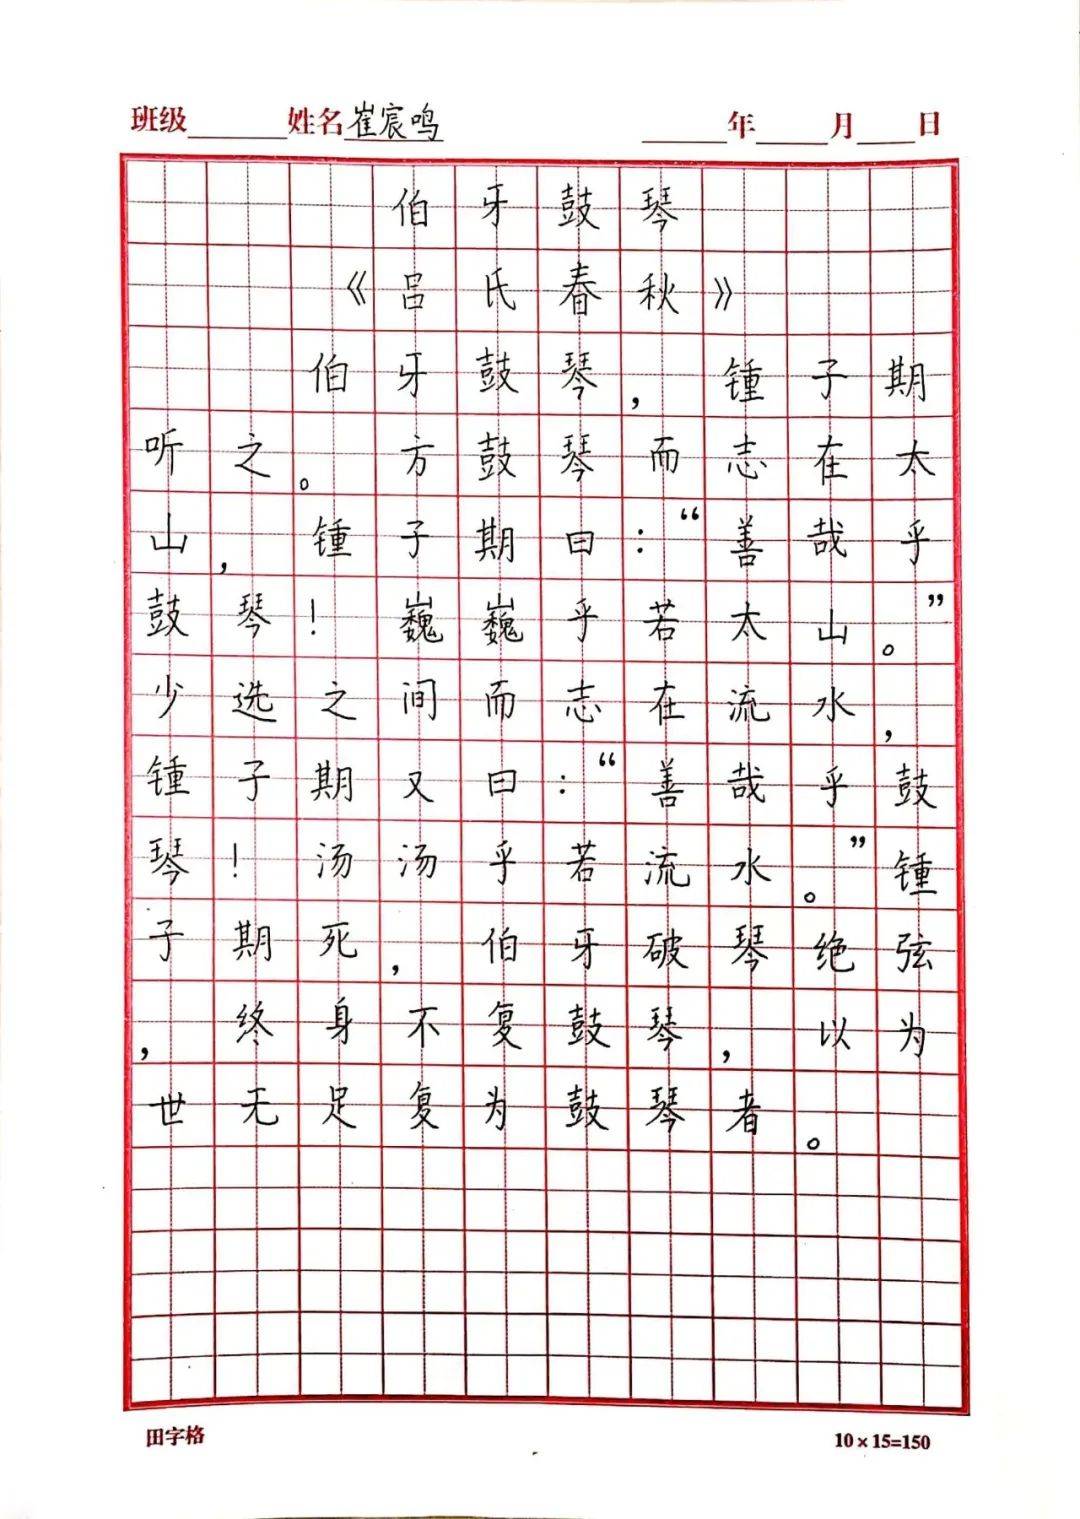 班级 姓名崔宸鸣 年 月 日
伯牙鼓琴
《吕氏春秋》
伯牙鼓琴，锺子期
听之。方鼓琴而志在太
山，锺子期曰：“善哉乎
鼓琴！巍巍乎若太山。”
少选之间而志在流水，
锺子期又曰：“善哉乎鼓
琴！汤汤乎若流水。”锺
子期死，伯牙破琴绝弦
，终身不复鼓琴，以为
世无足复为鼓琴者。
田字格 10×15=150